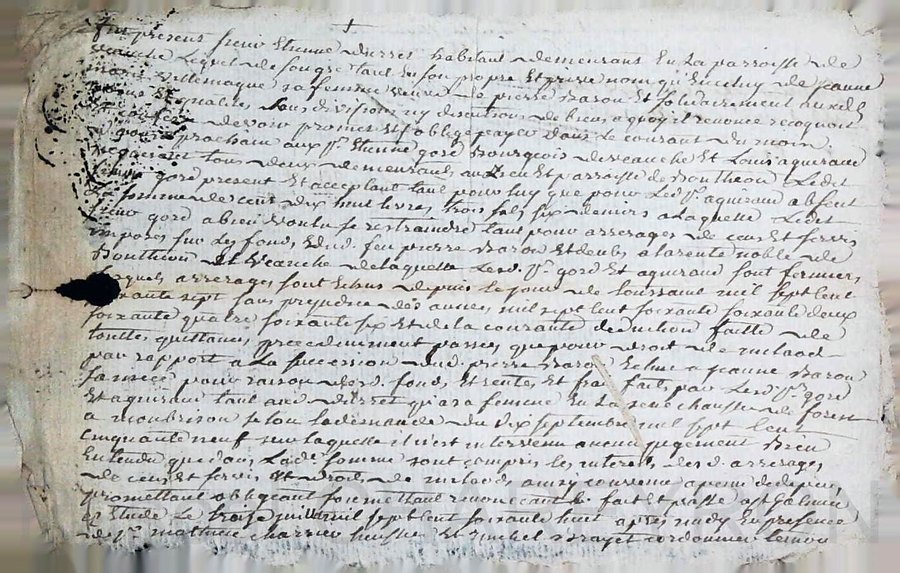 fut présent sieur Etienne durret habitant demeurant En La parroisse de
veauche Lequel de son gré tant En son propre Et privé nom qu'en celuy de jeanne
marie villemagne sa femme veuve de pierre Baron Et solidairement avec elle
sans division ny discution de biens a quoy il renonce reconnoit
devoir promet Et s'oblige payer dans le courant du mois
prochain aux Srs Etienne goré Bourgeois de veauche Et Louis aguiraud
tous deux demeurants au Lieu Et parroisse de Bouthéon Ledit
sieur goré present Et acceptant tant pour luy que pour Led. Sr. aguiraud absent
la somme de cent dix huit livres trois sols six deniers a laquelle Ledit
sieur goré a bien voulu se restraindre tant pour arrerages de cens Et servis
imposés sur Les fonds Dud. feu pierre Baron Et deubs a la rente noble de
Bouthéon Et veauche de laquelle Lesd. Srs. goré Et aguiraud sont fermiers
lesquels arrerages sont Echus depuis le jour de toussaint mil sept cent
sept sans prejudice des années mil sept cent soixante soixante deux
soixante quatre soixante six Et de la courante deduction faitte de
touttes quittances precedemment passées que pour droit de milaod
par rapport a La succession dud. pierre Baron Echue a jeanne Baron
sa niece pour raison desd. fonds Et rentes Et frais faits par Lesd. Srs. goré
Et aguiraud tant aud. durret qu'a sa femme En La senechaussée de forest
a montbrison selon la demande du dix septembre mil sept cent
cinquante neuf sur laquelle il n'est intervenu aucun jugement Bien
Entendu que dans Lad. somme sont compris les interets desd. arrerages
de cens Et servis Et droits de milaods ainsy convenu a peine de depens
promettant obligeant soumettant renonçant &c fait Et passé a St Galmier
Et Etude Le treize juillet mil sept cent soixante huit après midy En presence
de Sr. mathieu charrier huissier Et michel Brayet cordonnier temoins